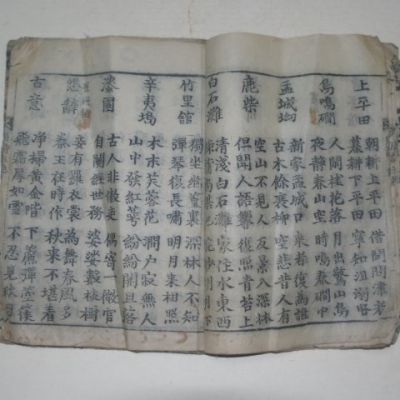 上平田
朝耕上平田 借問問津者
暮耕下平田 寧知沮溺
鳥鳴磵
人間桂花落 月出驚山鳥
夜静春山空 時鳴春磵中
孟城坳
新家孟城口 來者復為誰
古木餘衰柳 空悲昔人有
鹿柴
空山不見人 反景入深林
但聞人語響 復照青苔上
白石灘
清淺白石灘 家住水東西
明月下
竹里館
獨坐幽篁裏 深林人不知
彈琴復長嘯 明月來相照
辛夷塢
木末芙蓉花 澗戶寂無人
山中發紅萼 紛紛開且落
漆園
古人非傲吏 偶寄一微官
自闕經世務 婆娑數株樹
怨辭
妾有羅衣裳 為舞春風多
秦王在時作 秋來不堪看
古意
净掃黃金階 下簾彈箜篌
飛霜厚如雪 不忍見秋月